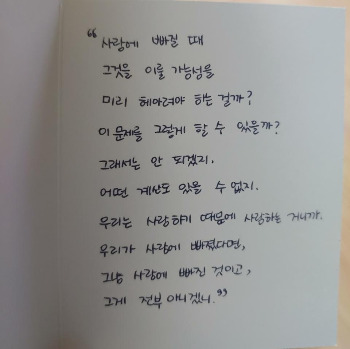 “사랑에 빠질 때
그것을 이룰 가능성을
미리 헤아려야 하는 걸까?
이 문제를 그렇게 할 수 있을까?
그래서는 안 되겠지.
어떤 계산도 있을 수 없지.
우리는 사랑하기 때문에 사랑하는 거니까.
우리가 사랑에 빠졌다면,
그냥 사랑에 빠진 것이고,
그게 전부 아니겠니.”